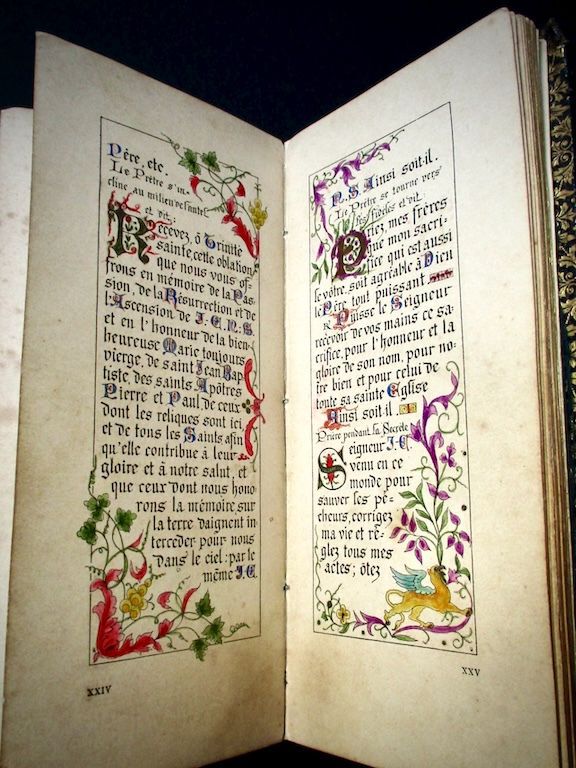 Père, etc.
Le Prêtre s'in
cline au milieu de l'autel
et dit:
Recevez, ô Trinité
sainte, cette oblation
que nous vous of-
frons en mémoire de la Pas-
sion, de la Résurrection et de
l'Ascension de J.C.N.S.
et en l'honneur de la bien-
heureuse Marie toujours
vierge, de saint Jean Bap
tiste, des saints Apôtres
Pierre et Paul, de ceux
dont les reliques sont ici
et de tous les Saints afin
qu'elle contribue à leur
gloire et à notre salut, et
que ceux dont nous hono
rons la mémoire sur
la terre daignent in
tercéder pour nous
dans le ciel: par le
même J.C.
XXIV
N.S. Ainsi soit-il.
Le Prêtre se tourne vers
les fidèles et dit:
Priez, mes frères
que mon sacri-
fice qui est aussi
le vôtre, soit agréable à Dieu
le Père tout puissant
R Puisse le Seigneur
recevoir de vos mains ce sa-
crifice, pour l'honneur et la
gloire de son nom, pour no-
tre bien et pour celui de
toute sa sainte Eglise
Ainsi soit-il.
Prière pendant la Secrète
Seigneur J-C
venu en ce
monde pour
sauver les pé-
cheurs, corrigez
ma vie et ré-
glez tous mes
actes; ôtez
XXV